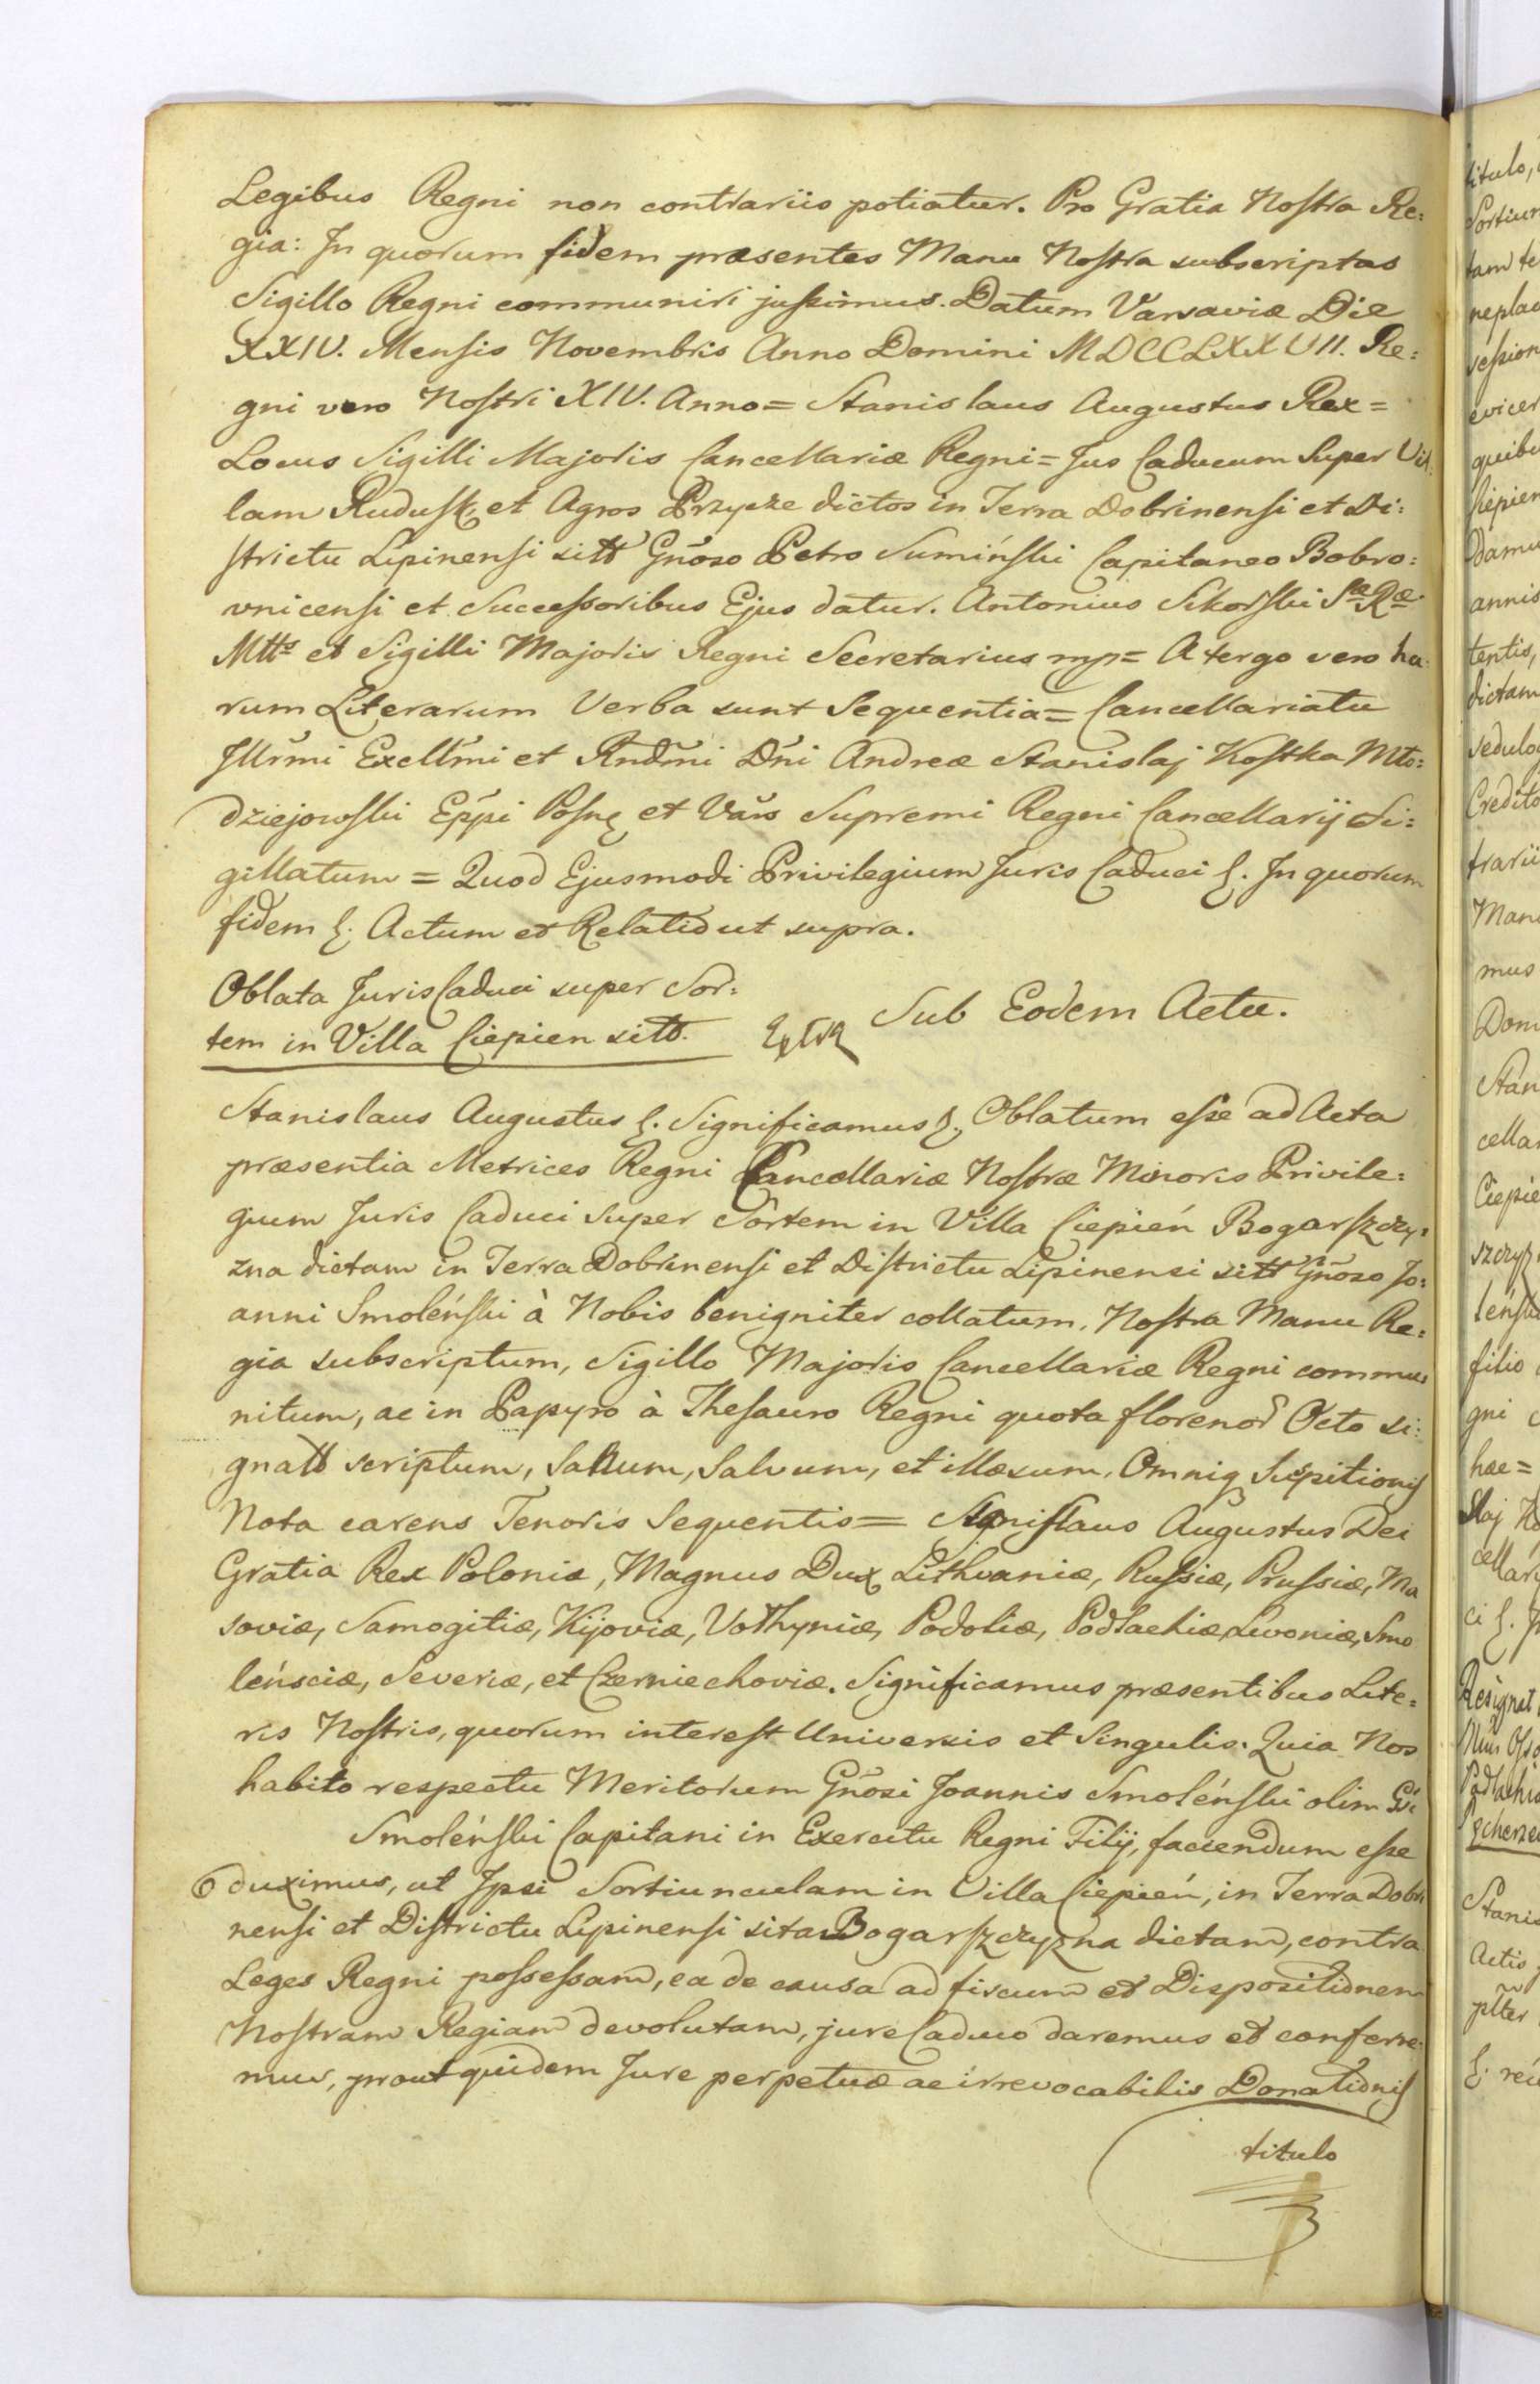 Legibus Regni non contrariis potiatur. Pro Gratia Nostra Re:
gia: In quorum fidem præsentes Manu Nostra subscriptas
Sigillo Regni communiri jussimus. Datum Varsaviæ Die
XXIV. Mensis Novembris Anno Domini MDCCLXXVII. Re:
gni vero Nostri XIV. Anno = Stanislaus Augustus Rex =
Locus Sigilli Majoris Cancellariæ Regni = Jus Caducum Super Vil
lam Rudusk, et Agros Przypże dictos in Terra Dobrinensi et Di:
strictu Lipinensi sitt Gñoso Petro Sumiński Capitaneo Bobro:
vnicensi et Successoribus Ejus datur. Antonius Sikorski Sæ Ræ
Mtts et Sigilli Majoris Regni Secretarius mp = A tergo vero ha:
rum Literarum Verba sunt Sequentia = Cancellariatu
Illr̃mi Excellm̃i et Rndm̃i Dñi Andreæ Stanislaj Kostka Mło:
dziejowski Epp̃i Posn et Vars Supremi Regni Cancellarij Si:
gillatum = Quod Ejusmodi Privilegium Juris Caduci &. In quorum
fidem &. Actum et Relatio ut supra.
Oblata Juris Caduci super Sor:
tem in Villa Ciepien sitt.
Sub Eodem Actu.
Stanislaus Augustus &. Significamus &. Oblatum esse ad Acta
præsentia Metrices Regni Cancellariæ Nostræ Minoris Privile:
gium Juris Caduci super Sortem in Villa Ciepień Bogarszczy:
zna dictam in Terra Dobrinensi et Districtu Lipinensi sitt Gñoso Jo:
anni Smoleński à Nobis benigniter collatum, Nostra Manu Re:
gia subscriptum, Sigillo Majoris Cancellariæ Regni commu
nitum, ac in Papyro à Thesauro Regni quota florenor Octo si:
gnatt scriptum, Sanum, Salvum, et illæsum, Omniq Suspitionis
Nota carens Tenoris Sequentis = Stanislaus Augustus Dei
Gratia Rex Poloniæ, Magnus Dux Lithvaniæ, Russiæ, Prussiæ, Ma
soviæ, Samogitiæ, Kijoviæ, Volhyniæ, Podoliæ, Podlachiæ, Livoniæ, Smo
lensciæ, Severiæ, et Czerniechoviæ. Significamus præsentibus Lite:
ris Nostris, quorum interest Universis et Singulis. Quia Nos
habito respectu Meritorum Gñosi Joannis Smoleński olim Gñi
Smoleński Capitani in Exercitu Regni Filij, faciendum esse
duximus, ut Ipsi Sortiunculam in Villa Ciepień, in Terra Dobri
nensi et Districtu Lipinensi sitam Bogarszczyzna dictam, contra
Leges Regni possessam, ea de causa ad fiscum et Dispositionem
Nostram Regiam devolutam, jure Caduco daremus et conferre:
mus, prout quidem Jure perpetuæ ac irrevocabilis Donationis
titulo